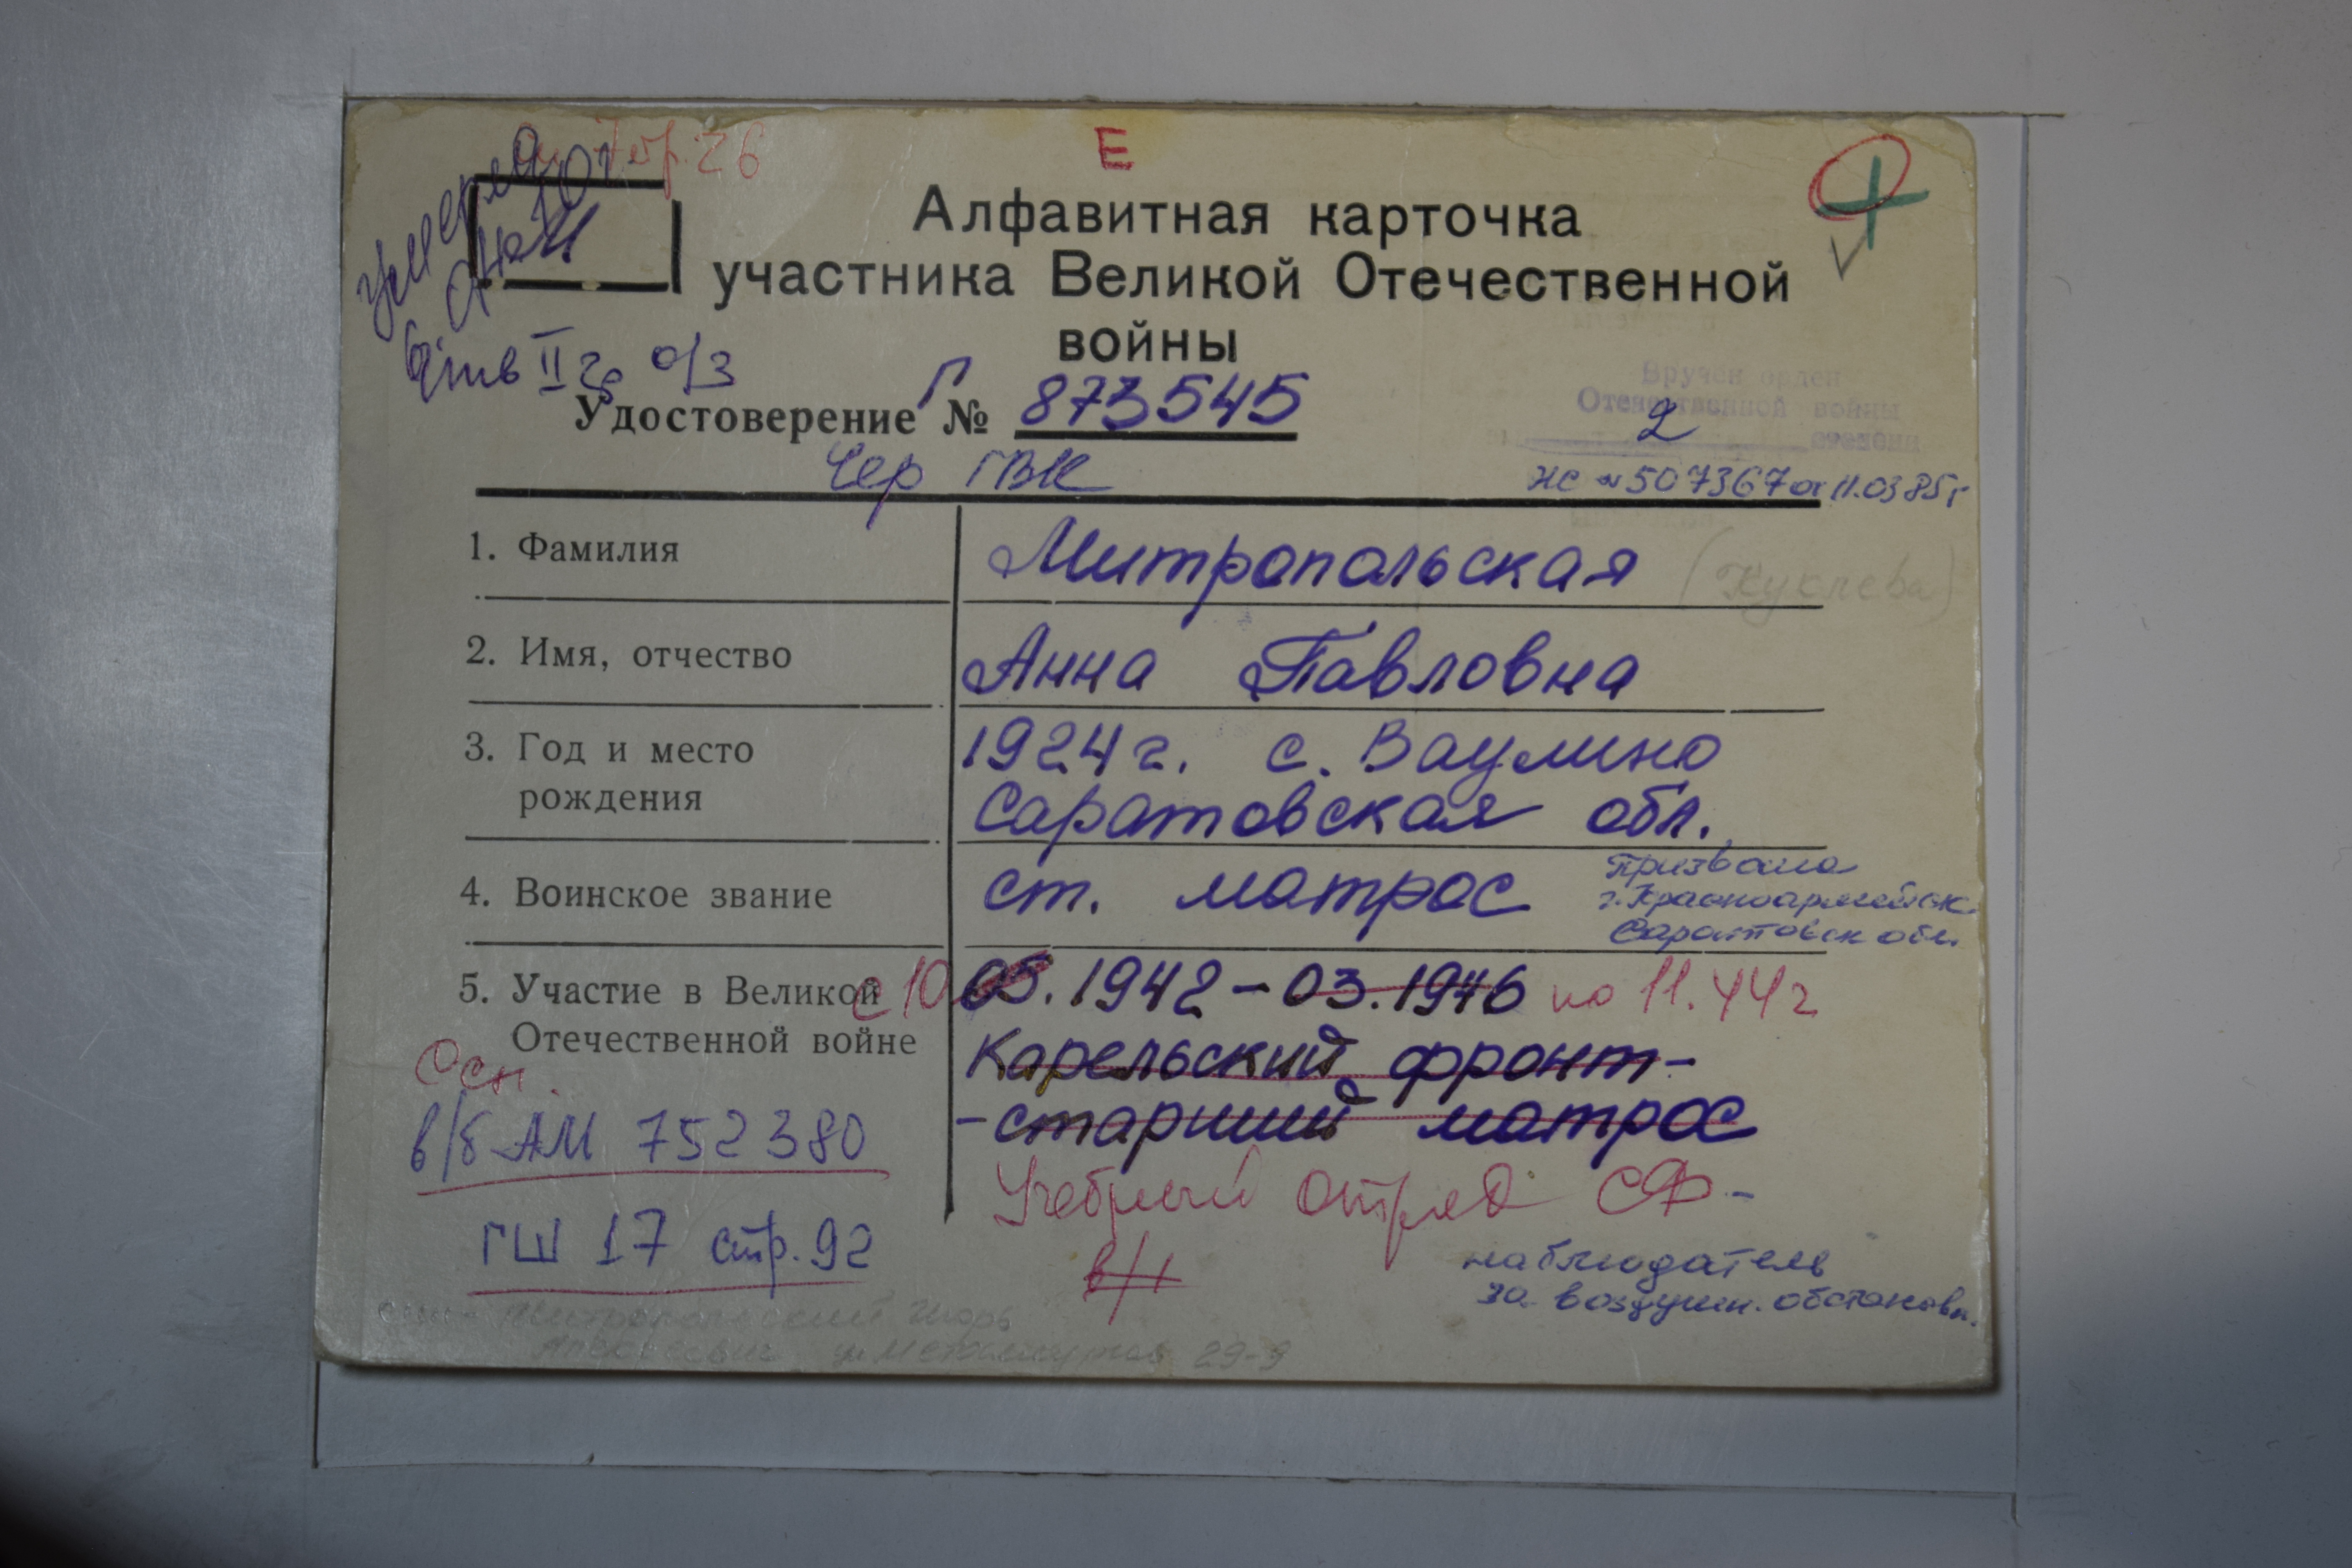 стр. 26
Е
умерла
Алфавитная карточка
участника Великой Отечественной
войны
II гр о/з
Удостоверение Г № 873545
Чер ГВК
Вручен орден
Отечественной войны
2 степени
НС № 507367 от 11.03 85 г
1. Фамилия
Митропольская (Куклева)
2. Имя, отчество
Анна Павловна
3. Год и место
рождения
1924 г. с. Ваулино
Саратовская обл.
4. Воинское звание
ст. матрос
Призвана
г. Красноармейск
Саратовск обл.
5. Участие в Великой
Отечественной войне
с 10 05. 1942 - 03. 1946 по 11. 44 г
Карельский фронт-
- старший матрос
Учебный отряд СФ -
наблюдатель
за воздушн. обстановк.
Осн.
в/б АМ 752380
ГШ 17 стр. 92
сын - Митропольский Игорь
ул Металлургов 29-9